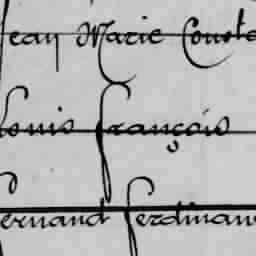 Jean Marie Const
Louis françois
fernand ferdinan